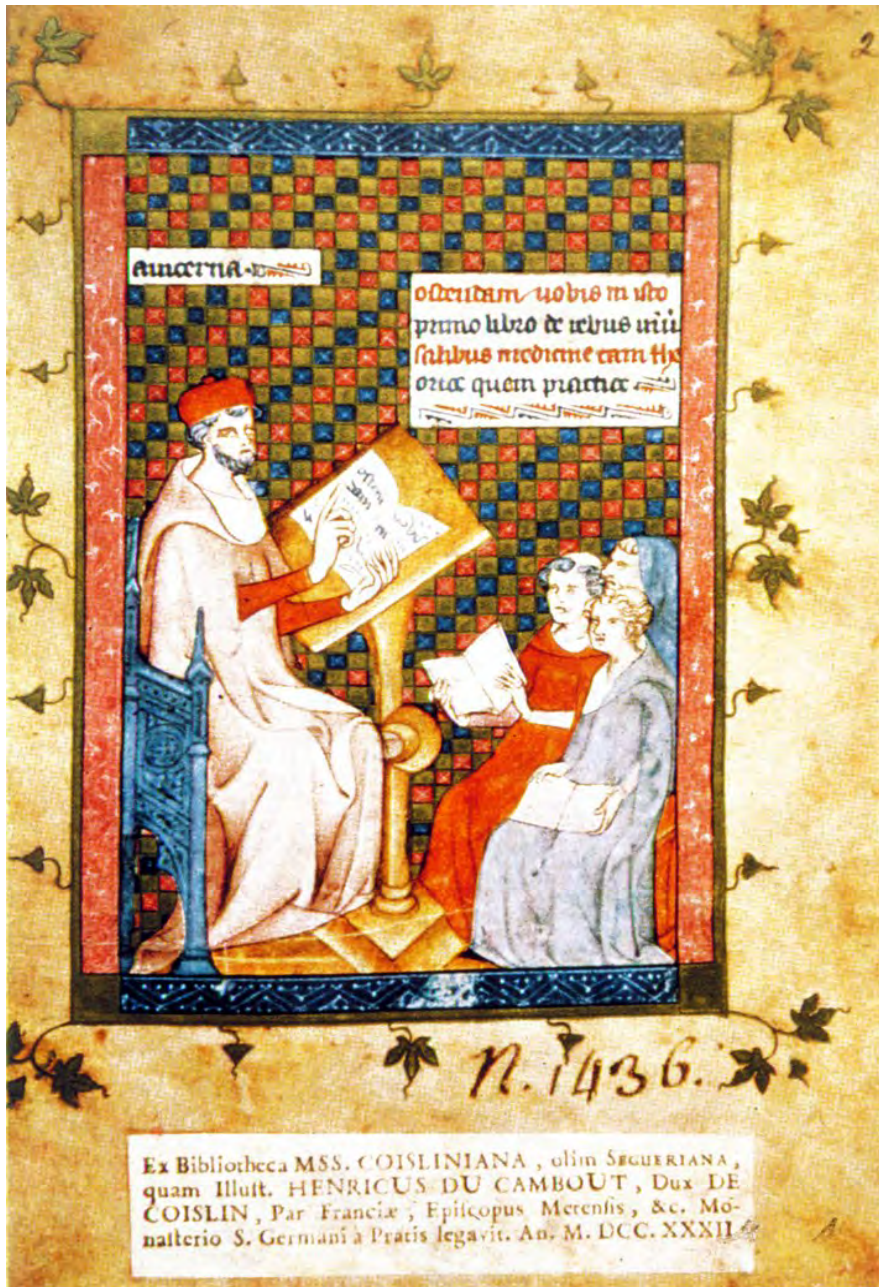 2
auicenna
ostendam uobis in isto
primo libro de rebus uniu
salibus medicine tam the
orice quam practice
N. 1436.
Ex Bibliotheca MSS. COISLINIANA, olim SEGUERIANA,
quam Illust. HENRICUS DU CAMBOUT, Dux DE
COISLIN, Par Franciæ, Episcopus Metensis, &c. Mo-
nasterio S. Germani à Pratis legavit. An. M. DCC. XXXII
A